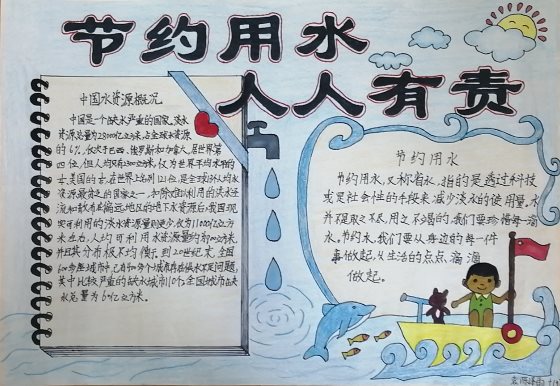 节约用水
人人有责
中国水资源概况
中国是一个缺水严重的国家,淡水
资源总量为28000亿立方米,占全球水资源
的6%,仅次于巴西、俄罗斯和加拿大,居世界第
四位,但人均只有2300立方米,仅为世界平均水平的
美国的 在世界上名列121位,是全球13个人均水
资源最贫乏的国家之一。扣除难以利用的洪水泾
流和散布在偏远地区的地下水资源后,我国现
实可利用的淡水资源量则更少,仅为11000亿立方
米左右,人均可利用水资源量约为900立方米,
并且其分布极不均衡。到20世纪末,全国
600多座城市中,已有400多个城市存在供水不足问题,
其中比较严重的缺水城市110个,全国城市缺
水总量为60亿立方米。
节约用水
节约用水,又称省水,指的是透过科技
或是社会性的手段来减少淡水的使用量,水
并不是取之不尽,用之不竭的,我们要珍惜每一滴
水,节约水,我们要从身边的每一件
事做起,从生活的点点滴滴
做起。